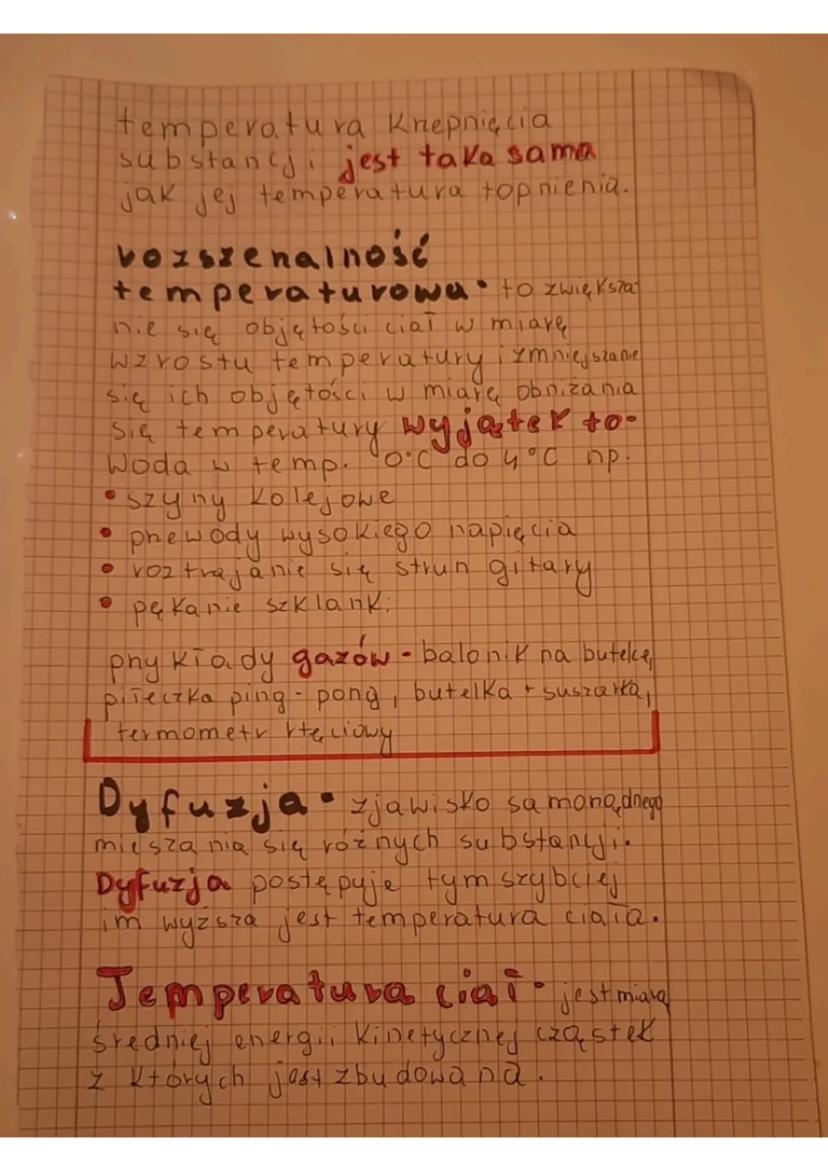 temperatura Krzepnięcia
substancji jest taka sama
jak jej temperatura topnienia.
rozszerzalność
temperaturowa • to zwiększa
nie się objętości ciał w miarę
wzrostu temperatury i zmniejszanie
się ich objętości w miarę obniżania
się temperatury wyjątek to-
Woda w temp. 0°C do 4°C np.
• szyny kolejowe
• przewody wysokiego napięcia
• roztrajanie się strun gitary
• pękanie szklanki
przykłady gazów - balonik na butelce,
piłeczka ping-pong, butelka + suszarka,
termometr rtęciowy
Dyfuzja • zjawisko samorządnego
mieszania się różnych substancji.
Dyfuzja postępuje tym szybciej
im wyższa jest temperatura ciała.
Temperatura ciał • jest miarą
średniej energii kinetycznej cząstek
z których jest zbudowana.